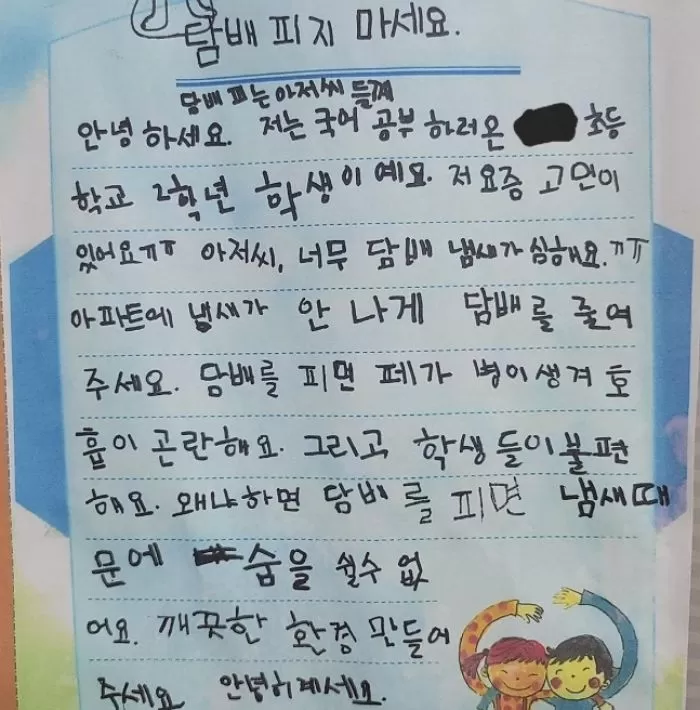 담배 피지 마세요.
담배 피는 아저씨 들께
안녕 하세요. 저는 국어 공부 하러온 초등
학교 2학년 학생이예요. 저 요즘 고민이
있어요ㅠㅠ 아저씨, 너무 담배 냄새가 심해요.ㅠㅠ
아파트에 냄새가 안 나게 담배를 줄여
주세요. 담배를 피면 페가 병이생겨 호
흡이 곤란해요. 그리고 학생들이불편
해요. 왜냐하면 담배를 피면 냄새때
문에 숨을 쉴수 없
어요. 깨끗한 환경 만들어
주세요 안녕히계세요.